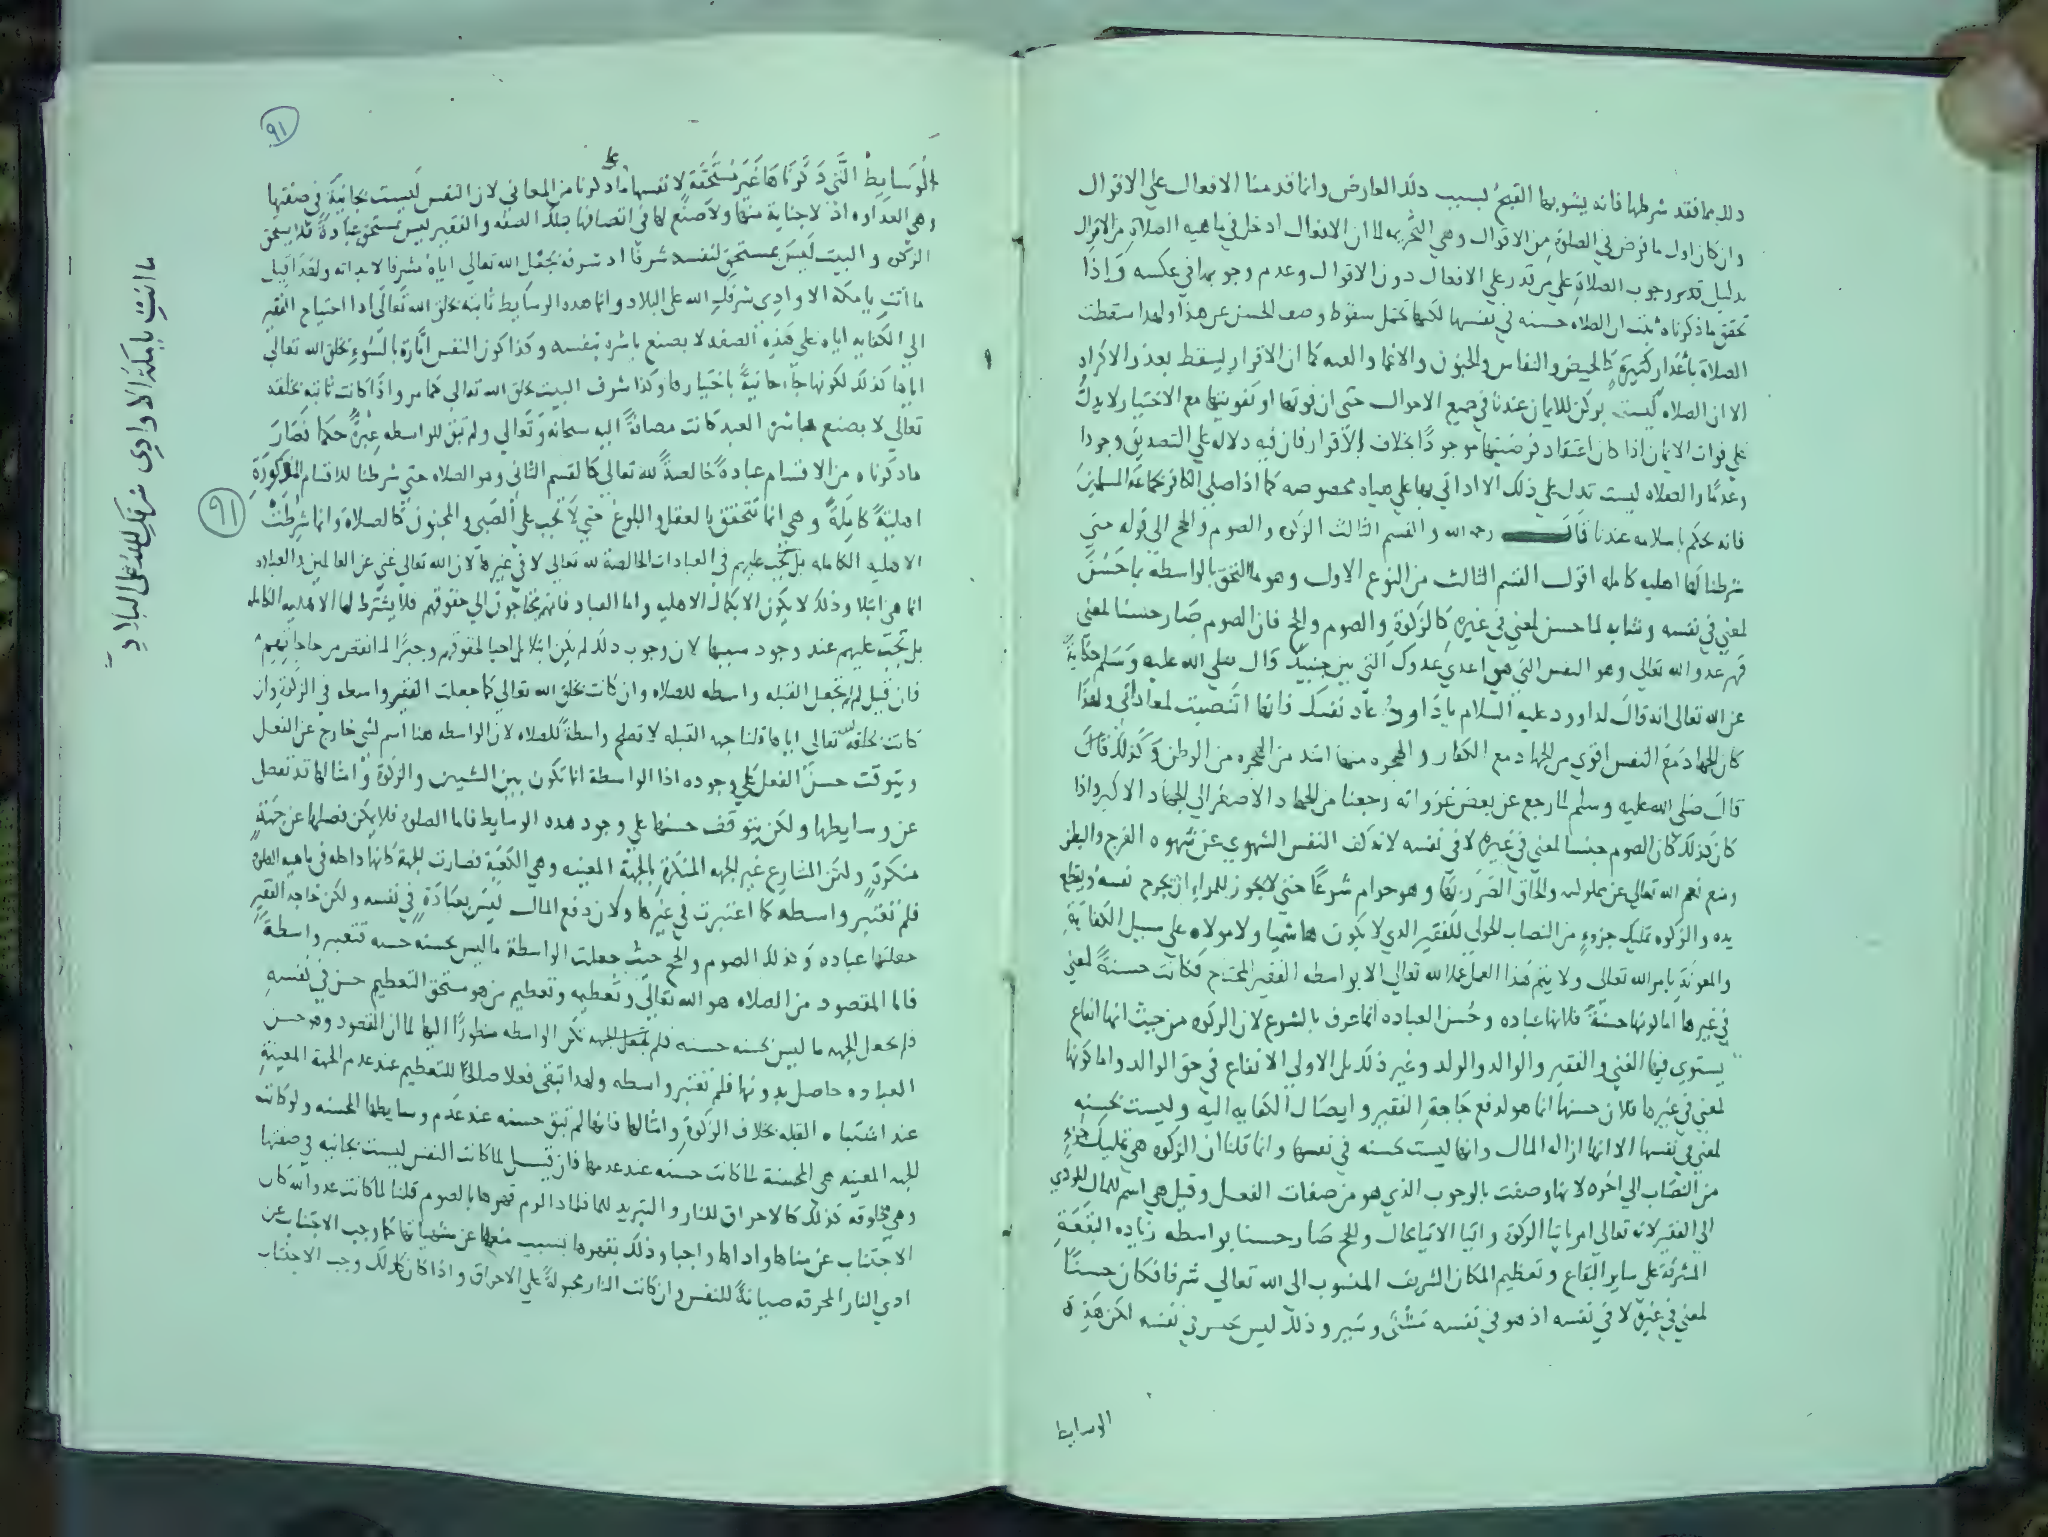 ذلك مما فقد شرطها فانه يشوبها القبح بسبب ذلك العارض وانما قدمنا الافعال علي الاقوال
وان كان اول ما فرض في الصلوة من الاقوال وهي التحريمه لما ان الافعال ادخل في ماهيه الصلاة من الاقوال
بدليل وجوب الصلاة علي من قدر علي الافعال دون الاقوال وعدم وجوبها في عكسه واذا
تحقق ما ذكرناه ثبت ان الصلاه حسنه في نفسها لكنها تحتمل سقوط وصف الحسن عن هذا ولهذا سقطت
الصلاة بأعذار كثيرة كالحيض والنفاس والجنون والاغما والعته كما ان الاقرار يسقط بعذر الاكراه
الا ان الصلاه ليست بركن للايمان عندنا في جميع الاحوال حتى ان فوتها او تفويتها مع الاختيار لا يدل
علي فوات الايمان اذا كان اعتقاد فرضيتها موجودًا بخلاف الاقرار فان فيه دلالة علي التصديق وجودا
وعدمًا والصلاه ليست تدل علي ذلك الا اذا اتي بها علي هياه مخصوصه كما اذا صلي الكافر بجماعة المسلمين
فانه يحكم باسلامه عندنا قال رحمه الله والقسم الثالث الزكوه والصوم والحج الي قوله حتي
شرطنا لها اهليه كامله اقول القسم الثالث من النوع الاول وهو ما التحق بالواسطة بما حسن
لمعني في نفسه وشابه لما حسن لمعني في غيره كالزكوة والصوم والحج فان الصوم صار حسنا لمعني
قهر عدو الله تعالي وهو النفس التي هي اعدي عدوك التي بين جنبيك قال صلي الله عليه وسلم حكاية
عن الله تعالى انه قال لداوود عليه السلام يا داود عاد نفسك فانها انتصبت لمعاداتي ولهذا
كان الجهاد مع النفس اقوي من الجهاد مع الكفار والهجره منها اشد من الهجره من الوطن وكذلك قال
قال صلى الله عليه وسلم لما رجع عن بعض غزواته رجعنا من الجهاد الاصغر الي الجهاد الاكبر واذا
كان كذلك كان الصوم حسنا لمعني في غيره لا في نفسه لانه كف النفس الشهوي عن شهوه الفرج والبطن
ومنع نعم الله تعالي عن مملوكه والحاق الضرر بها وهو حرام شرعًا حتى لا يجوز للمراء ان يجرح نفسه ويقطع
يده والزكوه تمليك جزوء من النصاب الحولي للفقير الذي لا يكون هاشميا ولا مولاه علي سبيل الكفاية
والمعونة بامر الله تعالى ولا يتم هذا العمل لله تعالي الا بواسطه الفقير المحتاج فكانت حسنة لمعني
في غيرها اما كونها حسنة فلانها عباده وحسن العباده انما عرف بالشرع لان الزكوه من حيث انها انفاع
يستوي فيها الغني والفقير والوالد والولد وغير ذلك بل الاولي الانفاع في حق الوالد واما كونها
لمعني في غيرها فلان حسنها انما هو لدفع حاجة الفقير وايصال الكفايه اليه وليست بحسنه
لمعني في نفسها الا انها ازاله المال وانها ليست بحسنه في نفسها وانما قلنا ان الزكوه هي تمليك جزء
من النصاب الي اخره لانها وصفت بالوجوب الذي هو من صفات الفعل وقيل هي اسم للمال المودي
الى الفقير لانه تعالي امر بايتا الزكوة وايتا الايتا محال والحج صار حسنا بواسطه زياده البقعة
المشرفة على ساير البقاع وتعظيم المكان الشريف المنسوب الى الله تعالي شرفا فكان حسنًا
لمعني في غيره لا في نفسه اذ هو في نفسه مشى وسير وذلك ليس بحسن في نفسه لكن هذه
الوسايط
٩١
الوسايط التي ذكرناها غير مستحقة لانفسها ما ذكرنا من المعاني لان النفس ليست بجانية في صفتها
علي
وهي العداوه اذ لا جناية منها ولا صنع لها في اتصافها بتلك الصفه والفقير ليس بمستحق عبادة فلا يستحق
الزكوه والبيت ليس بمستحق لنفسه شرفا اذ شرفه بجعل الله تعالي اياه مشرفا لا بذاته ولهذا قيل
ما أنت يا مكة الا وادى شرفك الله على البلاد وانما هذه الوسايط ثابته بخلق الله تعالى اذ احتياج الفقير
الي الكفايه اياه علي هذه الصفه لا بصنع باشره بنفسه وكذا كون النفس امارة بالسوء بخلق الله تعالي
اياها كذلك لكونها جانية باختيارها وكذا شرف البيت بخلق الله تعالى كما مر واذا كانت ثابته بخلقه
تعالي لا بصنع مباشر العبد كانت مضافة اليه سبحانه وتعالي ولم تبق للواسطه عبرة حكما فصار
ما ذكرناه من الاقسام عبادة خالصة لله تعالي كالقسم الثاني وهو الصلاه حتي شرطنا للاقسام المذكورة
٩١
اهلية كاملة وهي انما تتحقق بالعقل والبلوغ حتي لا تجب علي الصبي والمجنون كالصلاة وانما شرطت
الاهليه الكامله بل تجب عليهم في العبادات الخالصة لله تعالي لا في غيرها لان الله تعالي غني عن العالمين والعباده
انما هي ابتلا وذلك لا يكون الا بكمال الاهليه واما العباد فانهم محتاجون الي حقوقهم فلا يشترط لها الاهليه الكامله
بل تجب عليهم عند وجود سببها لان وجوب ذلك لم يكن ابتلا بل احيا لحقوقهم وجبرًا لما انتقص من حاجاتهم
فان قيل لم لم تجعل القبله واسطه للصلاه وان كانت بخلق الله تعالي كما جعلت الفقير واسطه في الزكوة وان
كانت بخلقه تعالي اياها قلنا جهه القبله لا تصلح واسطة للصلاه لان الواسطه هنا اسم لشي خارج عن الفعل
ويتوقف حسن الفعل علي وجوده اذا الواسطة انما تكون بين الشيين والزكوة وامثالها قد تنفصل
عن وسايطها ولكن يتوقف حسنها علي وجود هذه الوسايط فاما الصلوة فلا يمكن فصلها عن جهة
منكرة ولكن الشارع غير الجهه المنكرة بالجهة المعينه وهي الكعبة فصارت الجهة كانها داخله في ماهيه الصلوة
فلم تعتبر واسطه كما اعتبرت في غيرها ولان دفع المال ليس بعبادة في نفسه ولكن حاجه الفقير
جعلتها عباده وكذلك الصوم والحج حيث جعلت الواسطة ما ليس بحسنه حسنه فتعتبر واسطة
فاما المقصود من الصلاه هو الله تعالى وتعظيمه وتعظيم من هو مستحق التعظيم حسن في نفسه
فلم يجعل الجهه ما ليس بحسنه حسنه فلم تكن الواسطه منظورًا اليها لما ان المقصود وهو حسن
العباده حاصل بدونها فلم تعتبر واسطه ولهذا تبقى فعلا صالحًا للتعظيم عند عدم الجهة المعينة
عند اشتباه القبله بخلاف الزكوة وامثالها فانها لم تبق حسنه عند عدم وسايطها المحسنه ولو كانت
الجهه المعينه هي المحسنة لما كانت حسنه عند عدمها فان قيل لما كانت النفس ليست بجانيه في صفتها
وهي مخلوقه كذلك كالاحراق للنار والتبريد للماء فلماذا الزم قهرها بالصوم قلنا لما كانت عدو الله كان
الاجتناب عن مناها واداها واجبا وذلك بقهرها بسبب منعها عن مشتهياتها كما وجب الاجتناب عن
اذي النار المحرقه صيانة للنفس وان كانت النار مجبولة علي الاحراق واذا كان كذلك وجب الاجتناب
ما انت يا مكة الا وادى شرفك الله على البلاد